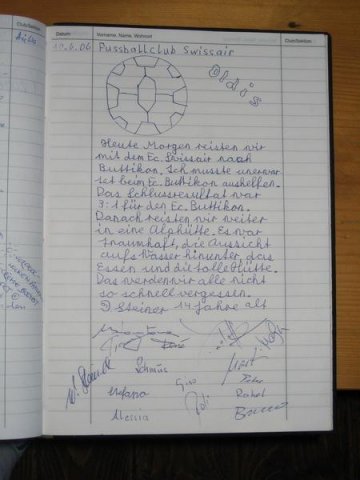 Club/Sektion
Datum
Vorname, Name, Wohnort
Club/Sektion
10.6.06 Fussballclub Swissair
Oldis
Heute Morgen reisten wir
mit dem Fc. Swissair nach
Buttikon. Ich musste unerwar
tet beim Fc. Buttikon aushelfen.
Das Schlussresultat war
3:1 für den Fc. Buttikon.
Danach reisten wir weiter
in eine Alphütte. Es war
traumhaft, die Aussicht
aufs Wasser hinunter, das
Essen und die tolle Hütte.
Das werden wir alle nicht
so schnell vergessen.
Steiner 14 Jahre alt
Schmüs
Stefano
Peter
Alessia
Röli
Rahel
Bruno